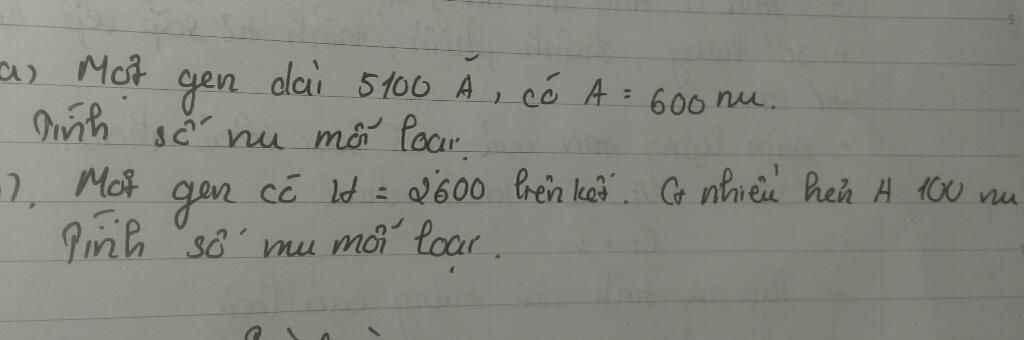 a) Một gen dài 5100 Å, có A = 600 nu.
Tính số nu mỗi loại.
). Một gen có H = 2600 liên kết. G nhiều hơn A 100 nu
Tính số nu mỗi loại.